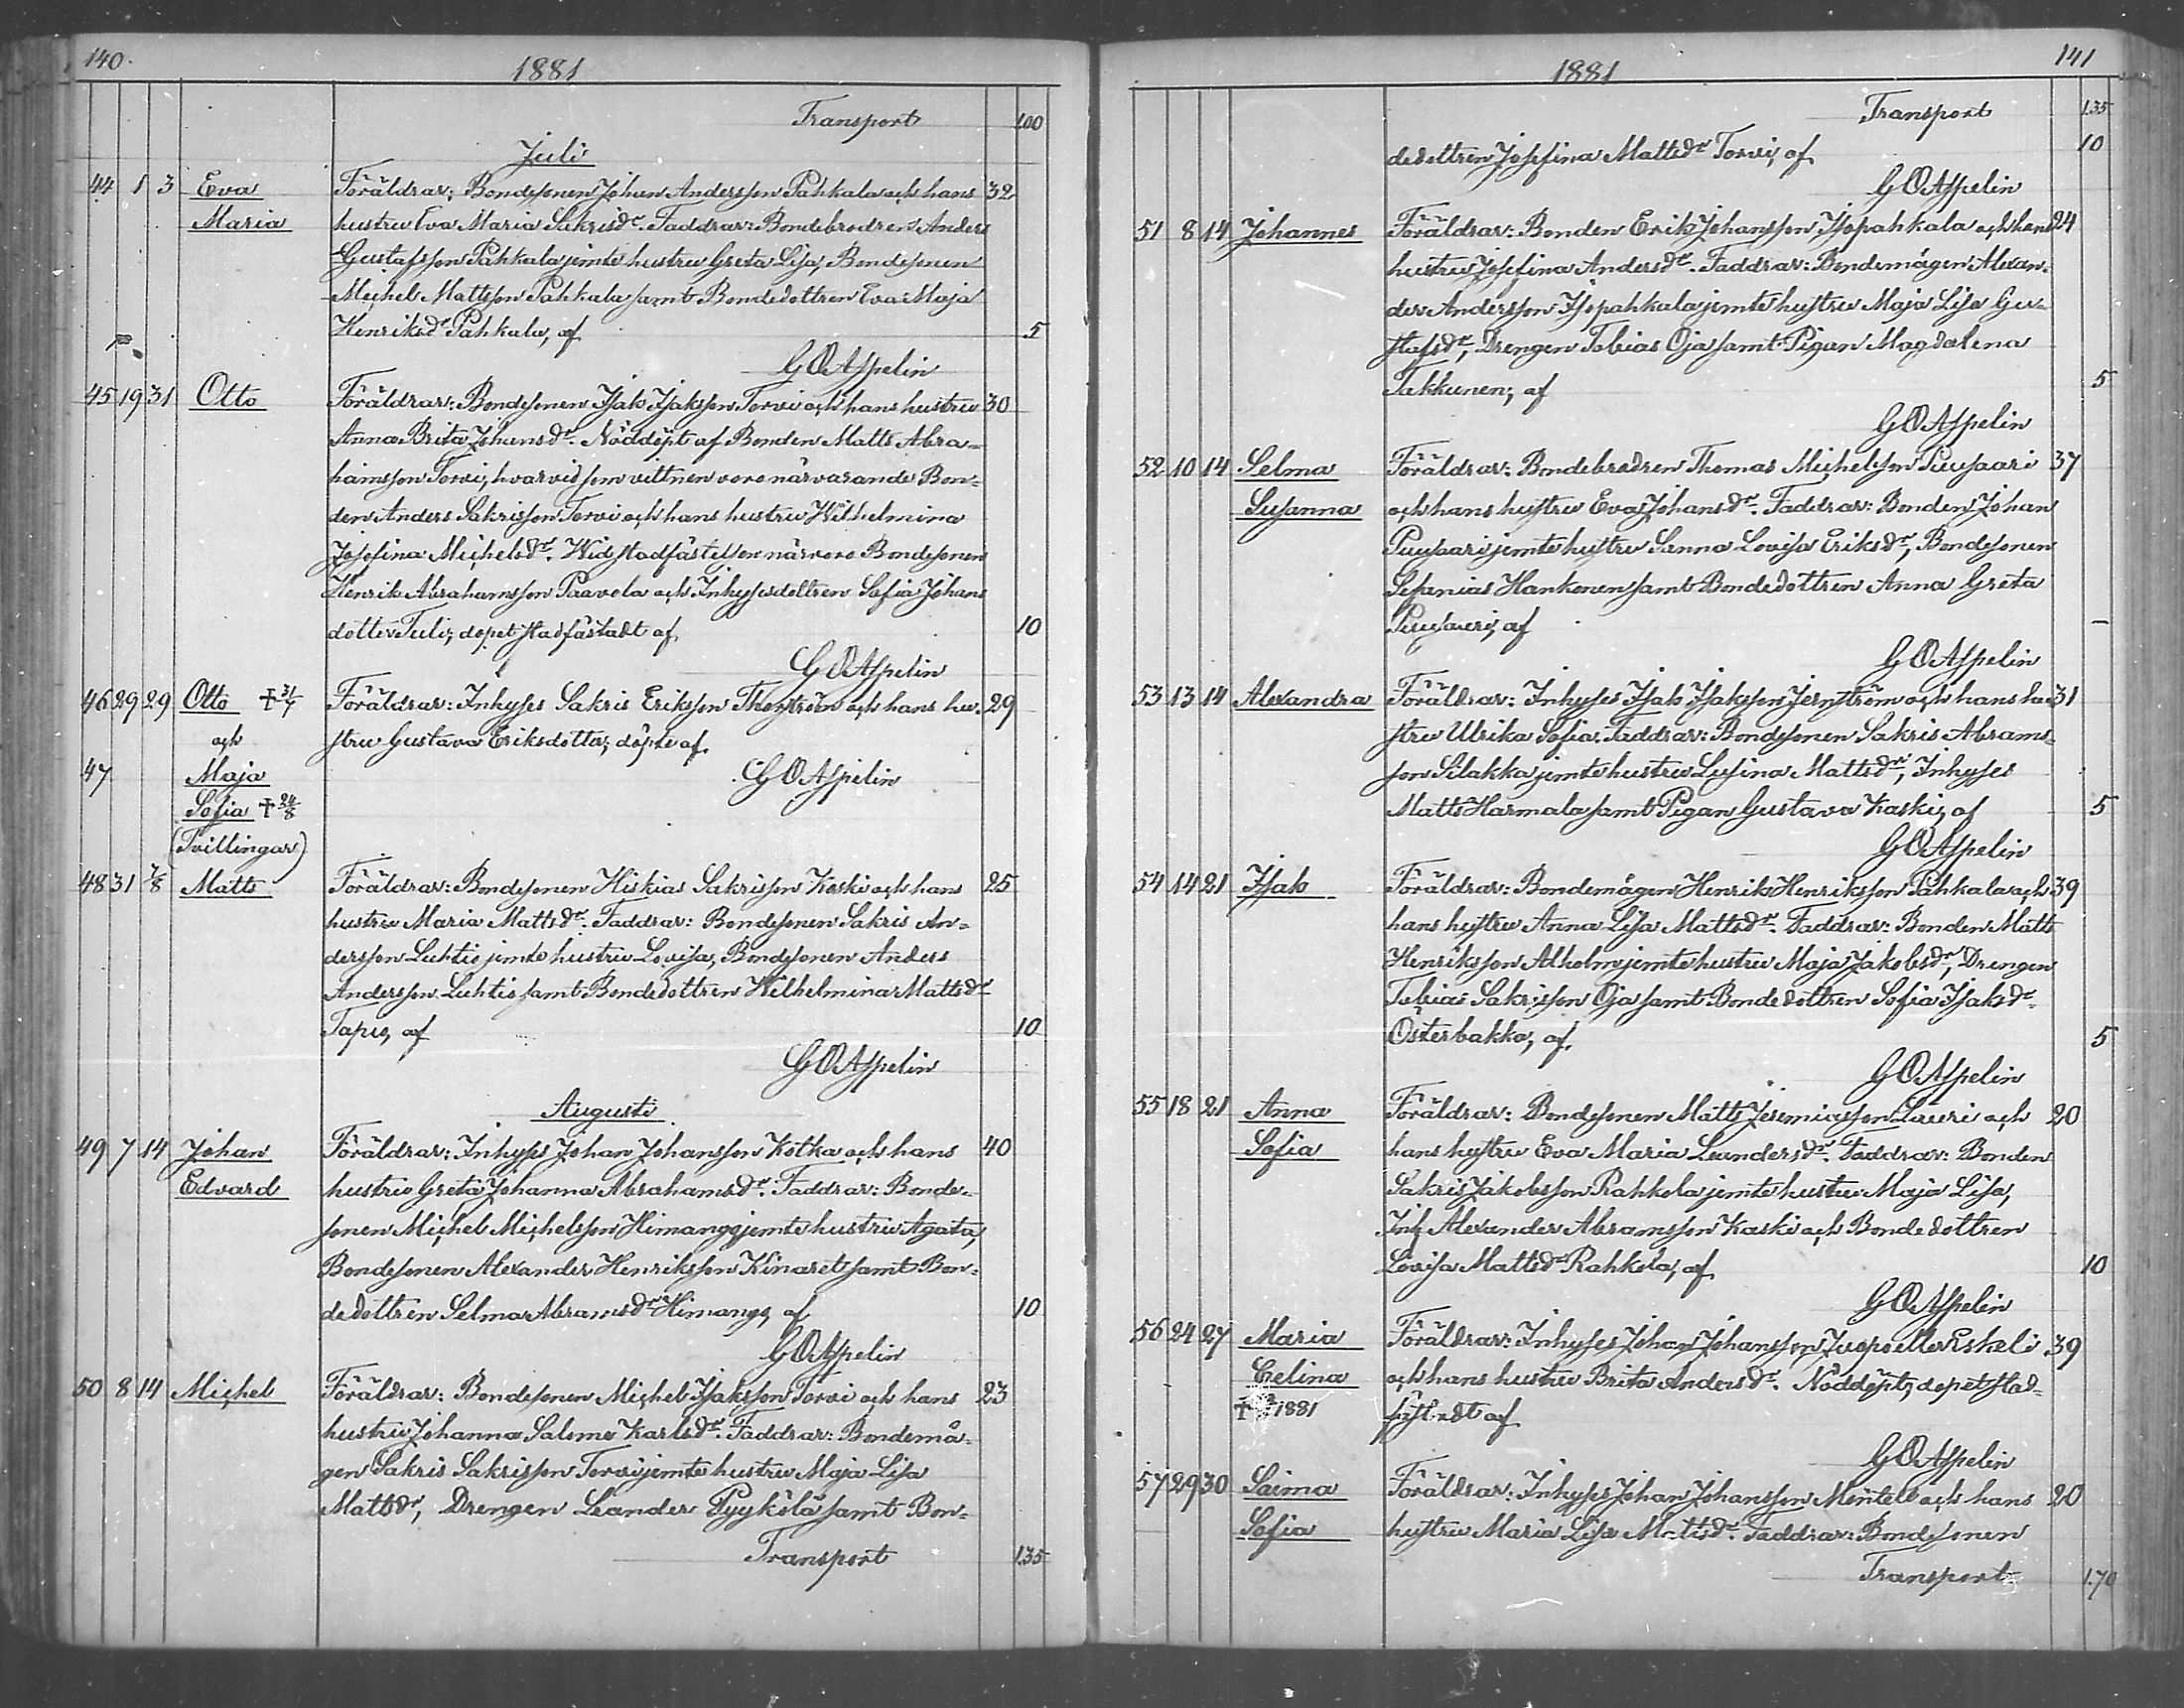 140.
1881
Transport 100
Juli
44 1 3 Eva Föräldrar: Bondesonen Johan Andersson Pahkala och hans 32
Maria hustru Eva Maria Sakrisdr. Faddrar: Bondebrodren Anders
Gustafsson Pahkala jemte hustru Greta Lisa, Bondesonen
Michel Mattsson Pahkala samt Bondedottren Eva Maja
Henriksdr Pahkala, af 5
G O Aspelin
45 19 31 Otto Föräldrar: Bondesonen Isak Isaksson Torvi och hans hustru 30
Anna Brita Johansdr. Nöddöpt af Bonden Matts Abra-
hamsson Torvi, hvarvid som vittnen voro närvarande Bon-
den Anders Sakrisson Torvi och hans hustru Wilhelmina
Josefina Michelsdr. Wid stadfästelsen närvoro Bondesonen
Henrik Abrahamsson Paavola och Inhysesdottren Sofia Johans
dotter Tuli; dopet stadfästadt af 10
G O Aspelin
46 29 29 Otto † 31/7 Föräldrar: Inhyses Sakris Eriksson Thorström och hans hu- 29
och stru Gustava Eriksdotter; döpte af
47 Maja G O Aspelin
Sofia † 24/8
(Tvillingar)
48 31 7/8 Matts Föräldrar: Bondesonen Hiskias Sakrisson Koski och hans 25
hustru Maria Mattsdr. Faddrar: Bondesonen Sakris An-
dersson Luhtio jemte hustru Lovisa, Bondesonen Anders
Andersson Luhtio samt Bondedottren Wilhelmina Mattsdr
Tapio, af 10
G O Aspelin
Augusti
49 7 14 Johan Föräldrar: Inhyses Johan Johansson Kotka och hans 40
Edvard hustru Greta Johanna Abrahamsdr. Faddrar: Bonde-
sonen Michel Michelsson Himango jemte hustru Agata,
Bondesonen Alexander Henriksson Kinaret samt Bon-
dedottren Selma Abramsdr Himango, af 10
G O Aspelin
50 8 14 Michel Föräldrar: Bondesonen Michel Isaksson Torvi och hans 23
hustru Johanna Salome Karlsdr. Faddrar: Bondemå-
gen Sakris Sakrisson Torvi jemte hustru Maja Lisa
Mattsdr, Drengen Leander Pyykölä samt Bon-
Transport 135
141
1881
Transport 135
dedottren Josefina Mattsdr Torvi, af 10
G O Aspelin
51 8 14 Johannes Föräldrar: Bonden Erik Johansson Isopahkala och hans 24
hustru Josefina Andersdr. Faddrar: Bondemågen Alexan-
der Andersson Isopahkala jemte hustru Maja Lisa Gu-
stafsdr, Drengen Tobias Oja samt Pigan Magdalena
Takkunen, af 5
G O Aspelin
52 10 14 Selma Föräldrar: Bondebrodren Thomas Michelsson Puusaari 37
Susanna och hans hustru Eva Johansdr. Faddrar: Bonden Johan
Puusaari jemte hustru Sanna Lovisa Eriksdr, Bondesonen
Sefanias Hankonen samt Bondedottren Anna Greta
Puusaari, af –
G O Aspelin
53 13 14 Alexandra Föräldrar: Inhyses Isak Isaksson Jernström och hans hu 31
stru Ulrika Sofia. Faddrar: Bondesonen Sakris Abrams-
son Silakka jemte hustru Lusina Mattsdr, Inhyses
Matts Harmala samt Pigan Gustava Kaski, af 5
G O Aspelin
54 14 21 Isak Föräldrar: Bondemågen Henrik Henriksson Pahkala och 39
hans hustru Anna Lisa Mattsdr. Faddrar: Bonden Matts
Henriksson Alholm jemte hustru Maja Jakobsdr, Drengen
Tobias Sakrisson Oja samt Bondedottren Sofia Isaksdr
Österbakka, af 5
G O Aspelin
55 18 21 Anna Föräldrar: Bondesonen Matts Jeremiasson Lauri och 20
Sofia hans hustru Eva Maria Leandersdr. Faddrar: Bonden
Sakris Jakobsson Rahkola jemte hustru Maja Lisa,
Inh. Alexander Abramsson Kaski och Bondedottren
Lovisa Mattsdr Rahkola, af 10
G O Aspelin
56 24 27 Maria Föräldrar: Inhyses Johan Johansson Juopo eller Eskeli 39
Celina och hans hustru Brita Andersdr. Nöddöpt; dopet stad-
† 1881 fästadt af
G O Aspelin
57 29 30 Saima Föräldrar: Inhyses Johan Johansson Mentelä och hans 20
Sofia hustru Maria Lisa Mattsdr. Faddrar: Bondesonen
Transport 1.70